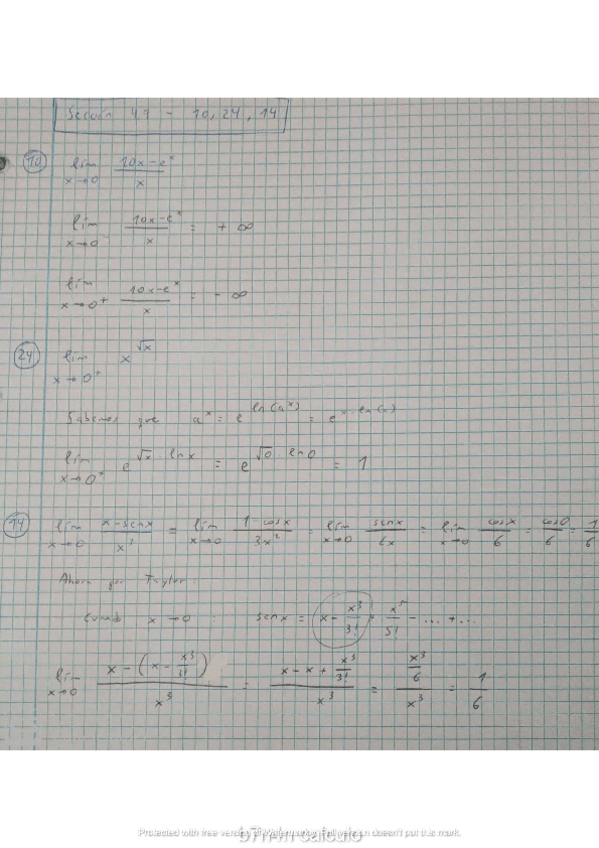 Sección 4.7 - 10, 24, 14
10 lim x→0 (10x-e^x)/x
lim x→0⁻ (10x-e^x)/x = +∞
lim x→0⁺ (10x-e^x)/x = -∞
24 lim x→0⁺ x^√x
Sabemos que a^x = e^ln(a^x) = e^x·ln(x)
lim x→0⁺ e^√x·lnx = e^√0·ln0 = 1
14 lim x→0 (x-senx)/x³ = lim x→0 (1-cosx)/3x² = lim x→0 senx/6x = lim x→0 cosx/6 = cos0/6 = 1/6
Ahora por Taylor:
Cuando x→0 : senx = x - x³/3! + x⁵/5! - ... + ...
lim x→0 (x-(x-x³/3!))/x³ = (x-x+x³/3!)/x³ = (x³/6)/x³ = 1/6
Protected with free version of Watermarkly. Full version doesn't put this mark.